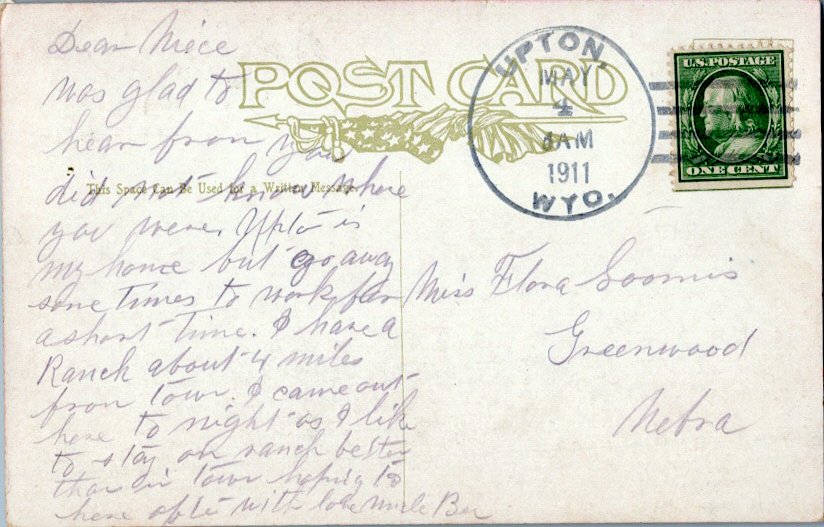 Dear Niece
was glad to
hear from you
did not know where
you were. Upton is
my home but go away
some times to work for
a short time. I have a
Ranch about 4 miles
from town. I came out
here to night as I like
to stay on ranch better
than in town hoping to
here often with love Uncle Ben
POST CARD
This Space Can Be Used for a Written Message.
UPTON.
MAY
4
AM
1911
WYO.
U.S. POSTAGE
ONE CENT
Miss Flora Loomis
Greenwood
Nebra